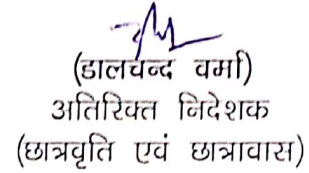 (डालचन्द वर्मा)
अतिरिक्त निदेशक
(छात्रवृति एवं छात्रावास)